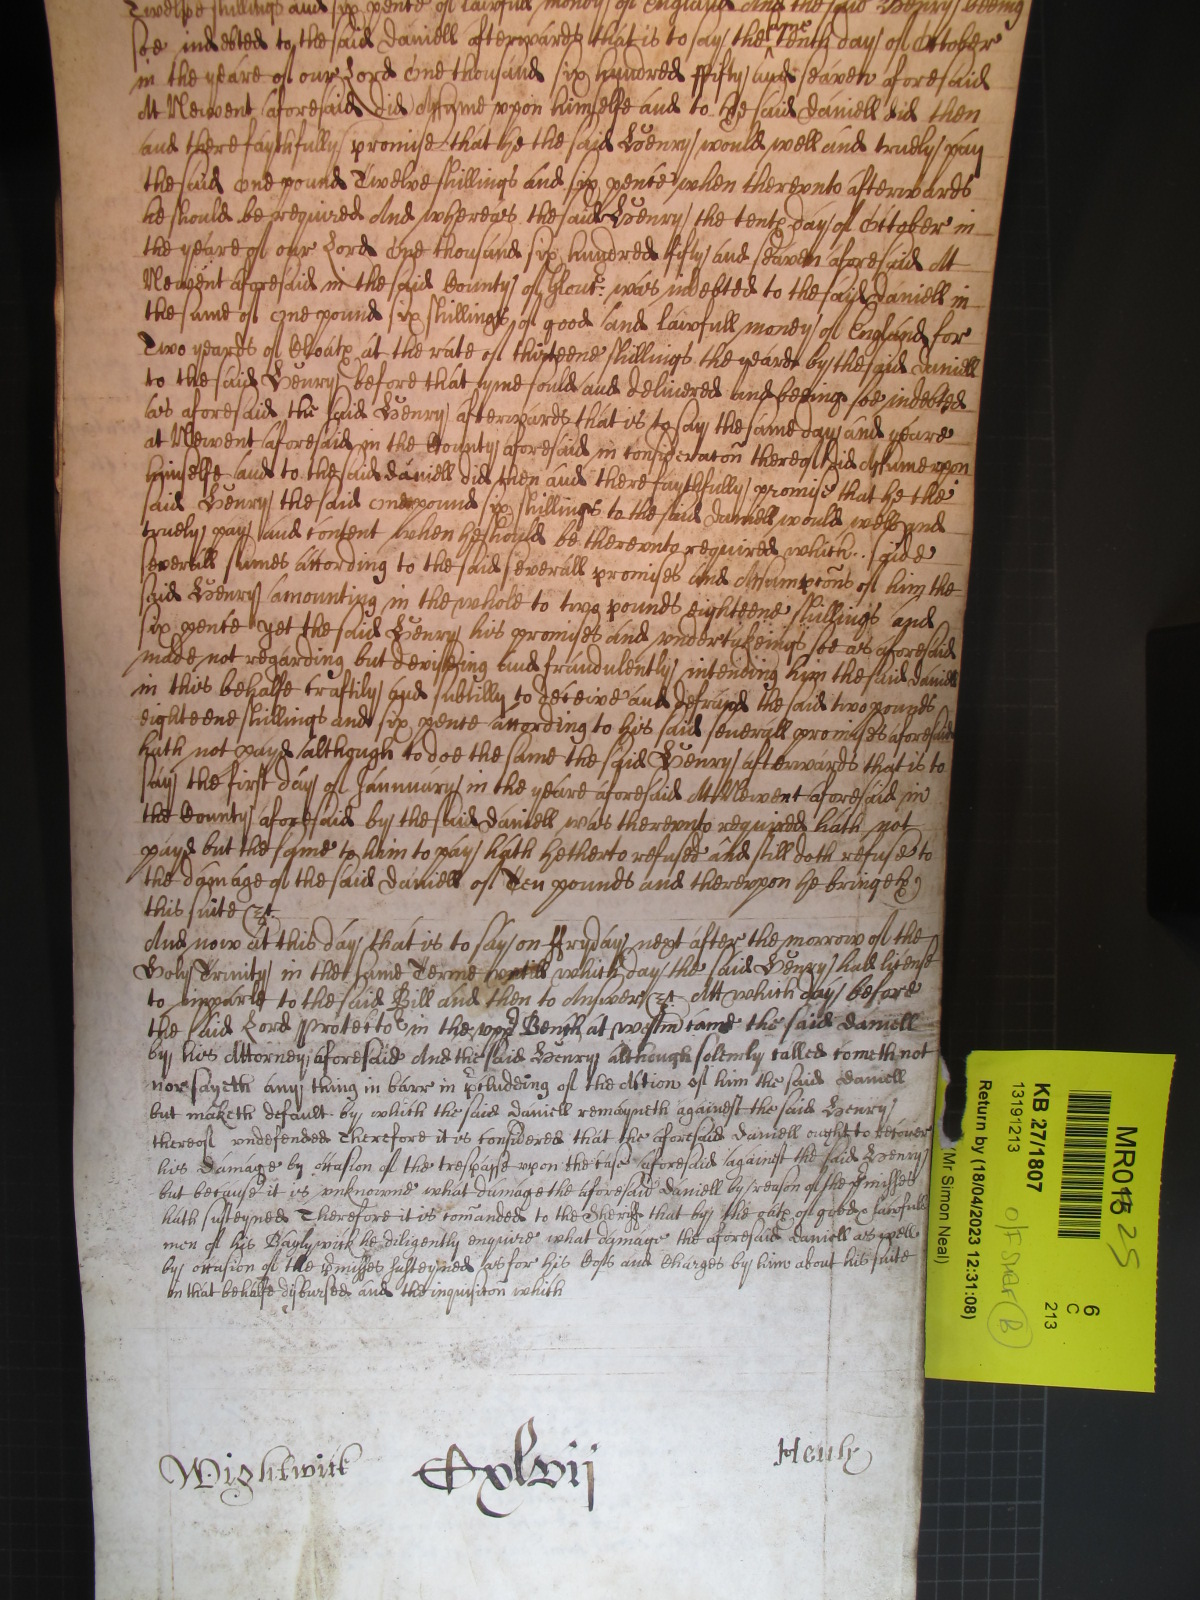 Twelve shillings and six pence of lawfull money of England And the said Henry beeing
soe indebted to the said Daniell afterwards that is to say the same Tenth day of October
in the yeare of our Lord One thousand six hundred ffifty and seaven aforesaid
At Newent aforesaid did Assume upon himselfe and to the said Daniell did then
and there faythfully promise that he the said Henry would well and truely pay
the said one pound Twelve shillings and six pence when therevnto afterwards
he should be required And whereas the said Henry the tenth day of October in
the yeare of our Lord One thousand six hundred fifty and seaven aforesaid At
Newent aforesaid in the said County of Glouc: was indebted to the said Daniell in
the sume of one pound six shillings of good and lawfull money of England for
Two yeards of Cloath at the rate of thirteene shillings the yeard by the said Daniell
to the said Henry before that tyme sould and delivered and beeing soe indebted
as aforesaid the said Henry afterwards that is to say the same day and yeare
at Newent aforesaid in the County aforesaid in consideracon thereof did Assume vpon
himselfe and to the said Daniell did then and there faythfully promise that he the
said Henry the said one pound six shillings to the said Daniell would well and
truely pay and content when he should be therevnto required which .. said
severall sumes according to the said severall promises and Assumptcons of him the
said Henry amounting in the whole to two pounds eighteene shillings and
six pence Yet the said Henry his promises and vndertakeings soe as aforesaid
made not regarding but deviseing and fraudulently intending him the said Daniell
in this behalfe craftily and subtilly to deceive and defraud the said two pounds
eighteene shillings and six pence according to his said severall promises aforesaid
hath not payd although to doe the same the said Henry afterwards that is to
say the first day of Jannuary in the yeare aforesaid At Newent aforesaid in
the County aforesaid by the said Daniell was therevnto required hath not
payd but the same to him to pay hath hetherto refused and still doth refuse to
the damage of the said Daniell of Ten pounds and therevpon he bringeth
this suite &c.
And now at this day that is to say on ffryday next after the morrow of the
Holy Trinity in the same Terme vntill which day the said Henry had license
to imparle to the said Bill and then to Answer &c. Att which day before
the said Lord Protector in the vpp Bench at Westm came the said Daniell
by his Attorney aforesaid And the said Henry although solemly called cometh not
nor sayeth any thing in barr in pcludeing of the Action of him the said Daniell
but maketh default by which the said Daniell remayneth against the said Henry
thereof vndefended Therefore it is considered that the aforesaid Daniell ought to recover
his Damage by occasion of the trespasse vpon the case aforesaid against the said Henry
but because it is vnknowne what damage the aforesaid Daniell by reason of the pmisses
hath susteyned Therefore it is comanded to the Sheriffe that by the oath of good & lawfull
men of his Baylywick he diligently enquire what damage the aforesaid Daniell as well
by occasion of the pmisses susteyned as for his Costs and Charges by him about his suite
in that behalfe disbursed and the inquisicon which
Wightwick Cxlvij Henly
MR018 25
6
C
213
KB 27/1807
13191213 O/F SHELF (B)
Return by (18/04/2023 12:31:08)
(Mr Simon Neal)